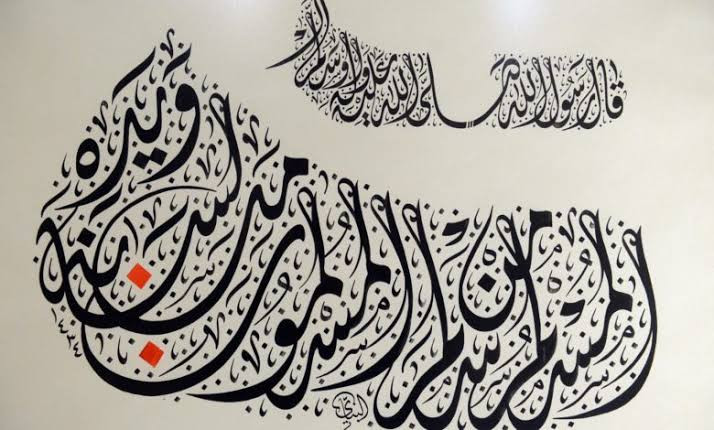 قال رسول الله صلى الله عليه وآله وسلم
المسلم من سلم المسلمون من لسانه ويده
١٤٣٤